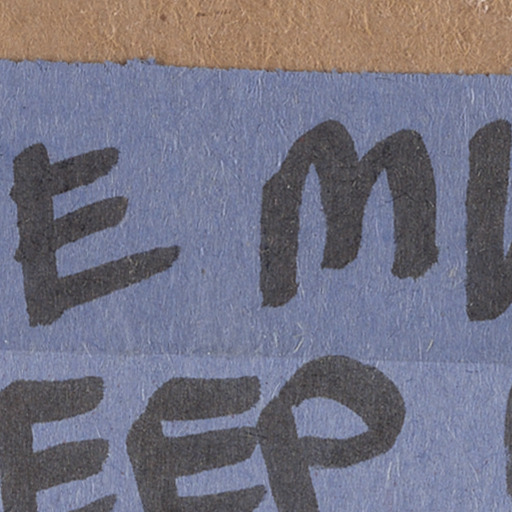 E M
EEP